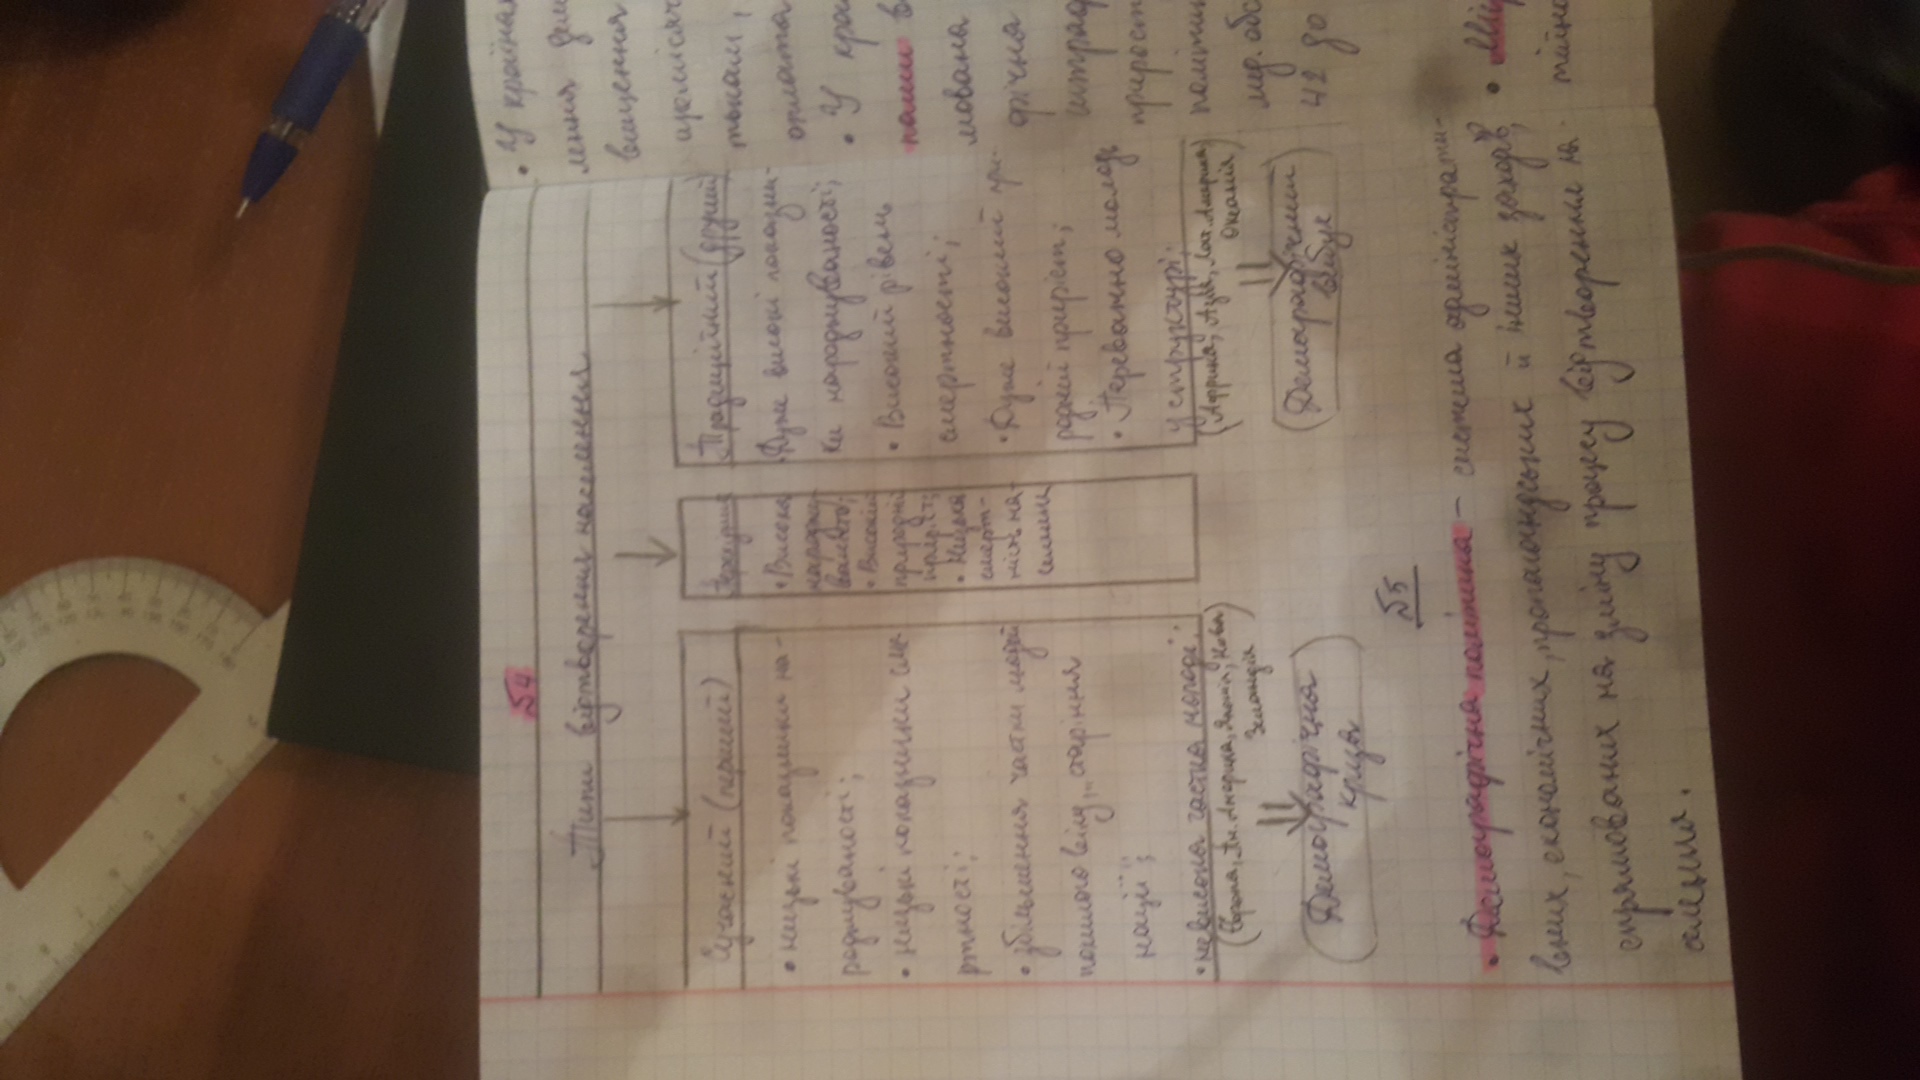 №4
Типи відтворення населення
Сучасний (перший)
• низькі показники на-
роджуваності;
• низькі показники сме-
ртності;
• збільшення частки людей
похилого віку, „старіння
нації";
• невисока частка молоді;
(Європа, Пн. Америка, Японія, Нова
Зеландія)
Демографічна
криза
Перехідний
• Висока
народжу-
ваність;
• Високий
природній
приріст;
• Низька
смерт-
ність на-
селення
Традиційний (другий)
• Дуже високі показни-
ки народжуваності;
• Високий рівень
смертності;
• Дуже високий при-
родній приріст;
• Переважно молодь
у структурі;
(Африка, Азія, Лат. Америка,
Океанія)
Демографічний
вибух
№5
• Демографічна політика – система адміністрати-
вних, економічних, пропагандських й інших заходів,
спрямованих на зміну процесу відтворення на-
селення.
• У країнах
лення
вищення
тькам;
оплата
• У кра
нами в
мована
фічна
приріст
політик
мед. обс
42 до